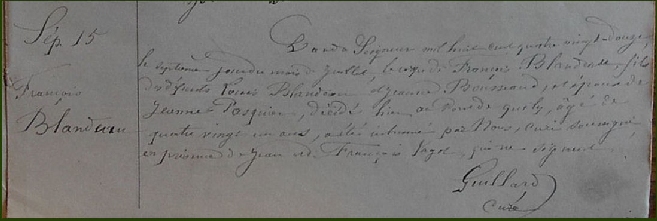 Sép. 15
François
Blandeau
L'an du Seigneur mil huit cent quatre vingt-douze,
le septième jour du mois de Juillet, le corps de François Blandeau, fils
des défunts Louis Blandeau et Jeanne et époux de
Jeanne Pasquier, décédé hier au de âgé de
quatre vingt un ans, a été inhumé par Nous, curé soussigné
en présence de Jean et de François Pagot, qui ne signent
Guillard
Curé